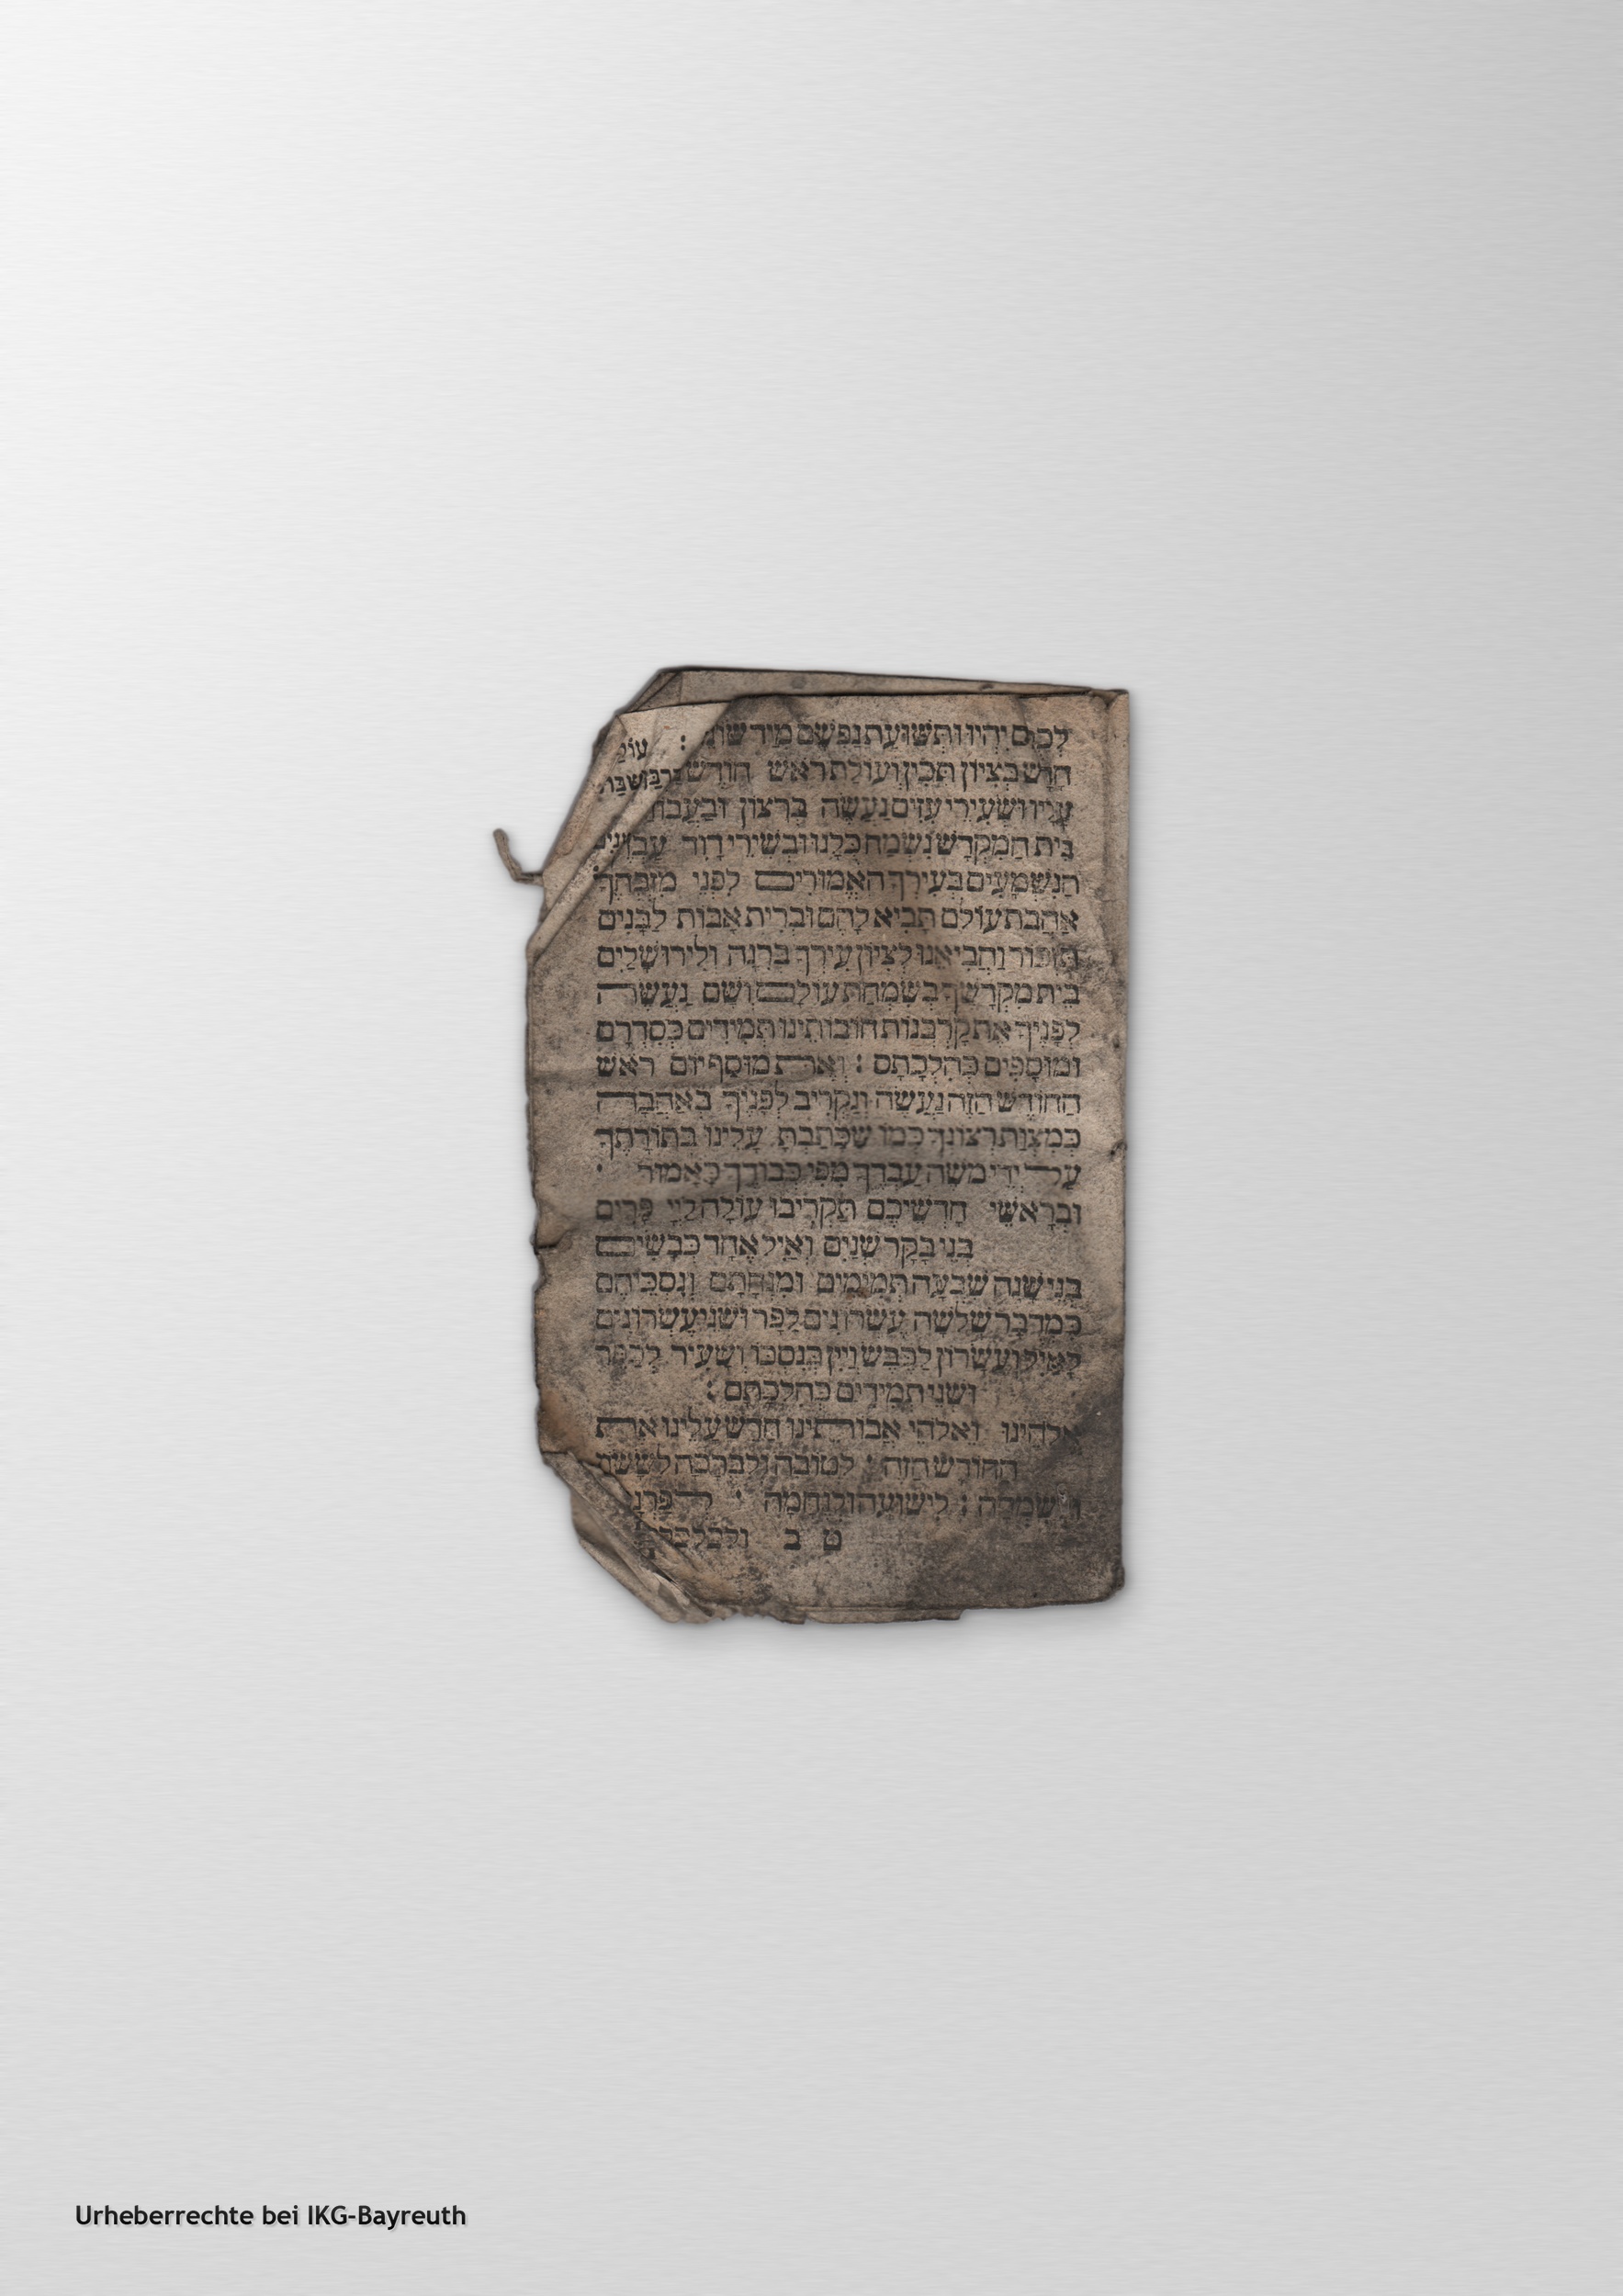 לְכֻלָּם יִהְיוּ וּתְשׁוּעַת נַפְשָׁם מִיַּד שׂוֹנֵא :
חָדָשׁ בְּצִיּוֹן תָּכִין וְעוֹלַת רֹאשׁ חוֹדֶשׁ
עָלָיו וּשְׂעִירֵי עִזִּים נַעֲשֶׂה בְרָצוֹן
בֵּית הַמִּקְדָּשׁ נִשְׂמַח כֻּלָּנוּ וּבְשִׁירֵי דָוִד
הַנִּשְׁמָעִים בְּעִירְךָ הָאֲמוּרִים לִפְנֵי מִזְבְּחֶךָ
אַהֲבַת עוֹלָם תָּבִיא לָהֶם וּבְרִית אָבוֹת לַבָּנִים
תִּזְכּוֹר וַהֲבִיאֵנוּ לְצִיּוֹן עִירְךָ בְּרִנָּה וְלִירוּשָׁלַיִם
בֵּית מִקְדָּשְׁךָ בְּשִׂמְחַת עוֹלָם וְשָׁם נַעֲשֶׂה
לְפָנֶיךָ אֶת קָרְבְּנוֹת חוֹבוֹתֵינוּ תְּמִידִים כְּסִדְרָם
וּמוּסָפִים כְּהִלְכָתָם : וְאֶת מוּסַף יוֹם רֹאשׁ
הַחוֹדֶשׁ הַזֶּה נַעֲשֶׂה וְנַקְרִיב לְפָנֶיךָ בְּאַהֲבָה
כְּמִצְוַת רְצוֹנֶךָ כְּמוֹ שֶׁכָּתַבְתָּ עָלֵינוּ בְּתוֹרָתֶךָ
עַל יְדֵי מֹשֶׁה עַבְדֶּךָ מִפִּי כְבוֹדֶךָ כָּאָמוּר ·
וּבְרָאשֵׁי חָדְשֵׁיכֶם תַּקְרִיבוּ עוֹלָה לַיְיָ פָּרִים
בְּנֵי בָקָר שְׁנַיִם וְאַיִל אֶחָד כְּבָשִׂים
בְּנֵי שָׁנָה שִׁבְעָה תְּמִימִים וּמִנְחָתָם וְנִסְכֵּיהֶם
כַּמְדֻבָּר שְׁלֹשָׁה עֶשְׂרוֹנִים לַפָּר וּשְׁנֵי עֶשְׂרוֹנִים
לָאַיִל וְעִשָּׂרוֹן לַכֶּבֶשׂ וְיַיִן כְּנִסְכּוֹ וְשָׂעִיר לְכַפֵּר
וּשְׁנֵי תְמִידִים כְּהִלְכָתָם :
אֱלֹהֵינוּ וֵאלֹהֵי אֲבוֹתֵינוּ חַדֵּשׁ עָלֵינוּ אֶת
הַחוֹדֶשׁ הַזֶּה · לְטוֹבָה וְלִבְרָכָה לְשָׂשׂוֹן
וּלְשִׂמְחָה : לִישׁוּעָה וּלְנֶחָמָה ·
ט ב
Urheberrechte bei IKG-Bayreuth